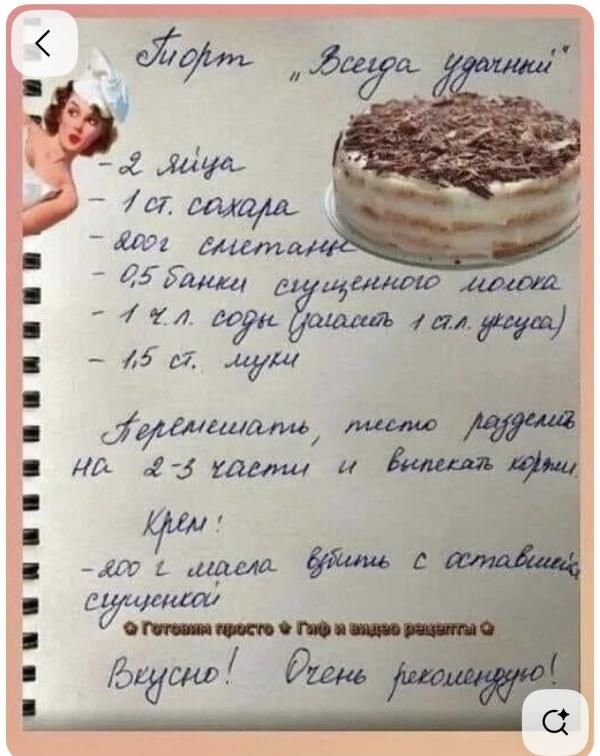 Торт „Всегда удачный“
- 2 яйца
- 1 ст. сахара
- 200г сметаны
- 0,5 банки сгущенного молока
- 1 ч.л. соды (загасить 1 ст.л. уксуса)
- 1,5 ст. муки
Перемешать, тесто разделить
на 2-3 части и выпекать коржи.
Крем:
- 200 г масла взбить с оставшейся
сгущенкой
✿ Готовим просто ✿ Гиф и видео рецепты ✿
Вкусно! Очень рекомендую!